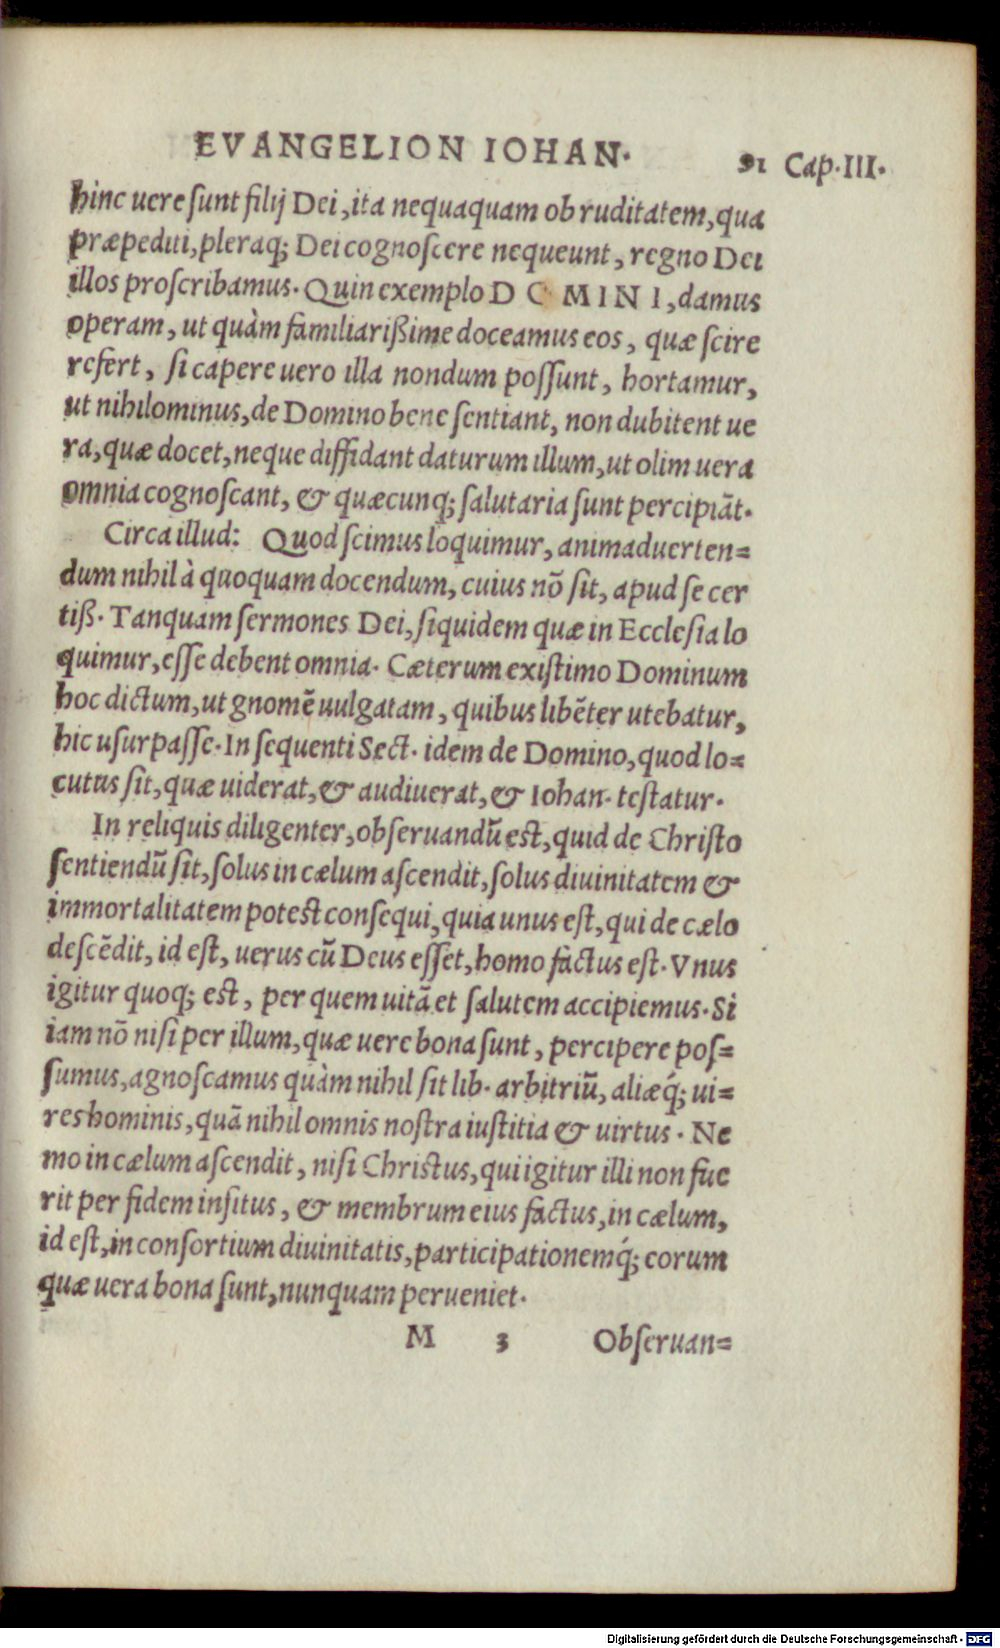 EVANGELION IOHAN.
91 Cap. III.
hinc uere sunt filij Dei, ita nequaquam ob ruditatem, qua
præpediti, pleraq; Dei cognoscere nequeunt, regno Dei
illos proscribamus. Quin exemplo DOMINI, damus
operam, ut quàm familiarißime doceamus eos, quæ scire
refert, si capere uero illa nondum possunt, hortamur,
ut nihilominus, de Domino bene sentiant, non dubitent ue
ra, quæ docet, neque diffidant daturum illum, ut olim uera
omnia cognoscant, & quæcunq; salutaria sunt percipiāt.
Circa illud: Quod scimus loquimur, animaduerten=
dum nihil à quoquam docendum, cuius nō sit, apud se cer
tiß. Tanquam sermones Dei, siquidem quæ in Ecclesia lo
quimur, esse debent omnia. Cæterum existimo Dominum
hoc dictum, ut gnomē uulgatam, quibus libēter utebatur,
hic usurpasse. In sequenti Sect. idem de Domino, quod lo=
cutus sit, quæ uiderat, & audiuerat, & Iohan. testatur.
In reliquis diligenter, obseruandū est, quid de Christo
sentiendū sit, solus in cælum ascendit, solus diuinitatem &
immortalitatem potest consequi, quia unus est, qui de cælo
descēdit, id est, uerus cū Deus esset, homo factus est. Vnus
igitur quoq; est, per quem uitā et salutem accipiemus. Si
iam nō nisi per illum, quæ uere bona sunt, percipere pos=
sumus, agnoscamus quàm nihil sit lib. arbitriū, aliæq́; ui=
res hominis, quā nihil omnis nostra iustitia & uirtus. Ne
mo in cælum ascendit, nisi Christus, qui igitur illi non fue
rit per fidem insitus, & membrum eius factus, in cælum,
id est, in consortium diuinitatis, participationemq́; eorum
quæ uera bona sunt, nunquam perueniet.
M 3 Obseruan=
Digitalisierung gefördert durch die Deutsche Forschungsgemeinschaft - DFG